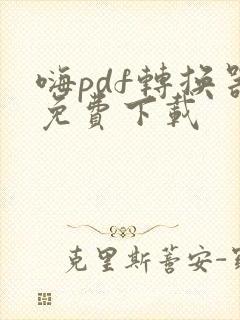 嗨pdf轉換器
免費下載
克里斯蒂安-